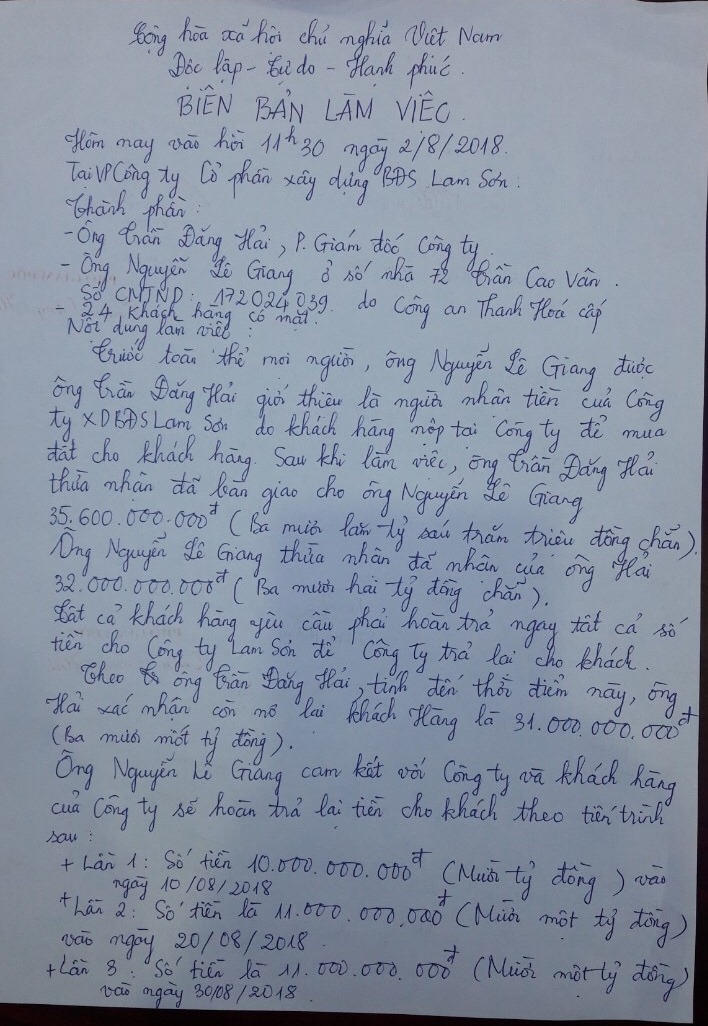 Cộng hòa xã hội chủ nghĩa Việt Nam
Độc lập - Tự do - Hạnh phúc.
BIÊN BẢN LÀM VIỆC.
Hôm nay vào hồi 11h30 ngày 2/8/2018.
Tại VP Công ty Cổ phần xây dựng BĐS Lam Sơn.
Thành phần:
- Ông Trần Đăng Hải, P. Giám đốc Công ty.
- Ông Nguyễn Lê Giang ở số nhà 72 Trần Cao Vân.
Số CMTND: 172024039. do Công an Thanh Hoá cấp
- 24 khách hàng có mặt.
Nội dung làm việc:
Trước toàn thể mọi người, ông Nguyễn Lê Giang được
ông Trần Đăng Hải giới thiệu là người nhận tiền của Công
ty XDBĐS Lam Sơn do khách hàng nộp tại Công ty để mua
đất cho khách hàng. Sau khi làm việc, ông Trần Đăng Hải
thừa nhận đã bàn giao cho ông Nguyễn Lê Giang
35.600.000.000đ (Ba mươi lăm tỷ sáu trăm triệu đồng chẵn).
Ông Nguyễn Lê Giang thừa nhận đã nhận của ông Hải
32.000.000.000đ (Ba mươi hai tỷ đồng chẵn).
Tất cả khách hàng yêu cầu phải hoàn trả ngay tất cả số
tiền cho Công ty Lam Sơn để Công ty trả lại cho khách.
Theo ông Trần Đăng Hải, tính đến thời điểm này, ông
Hải xác nhận còn nợ lại khách Hàng là 31.000.000.000đ
(Ba mươi một tỷ đồng).
Ông Nguyễn Lê Giang cam kết với Công ty và khách hàng
của Công ty sẽ hoàn trả lại tiền cho khách theo tiến trình
sau:
+ Lần 1: Số tiền 10.000.000.000đ (Mười tỷ đồng) vào
ngày 10/08/2018
+ Lần 2: Số tiền là 11.000.000.000đ (Mười một tỷ đồng)
vào ngày 20/08/2018.
+ Lần 3: Số tiền là 11.000.000.000đ (Mười một tỷ đồng)
vào ngày 30/08/2018.